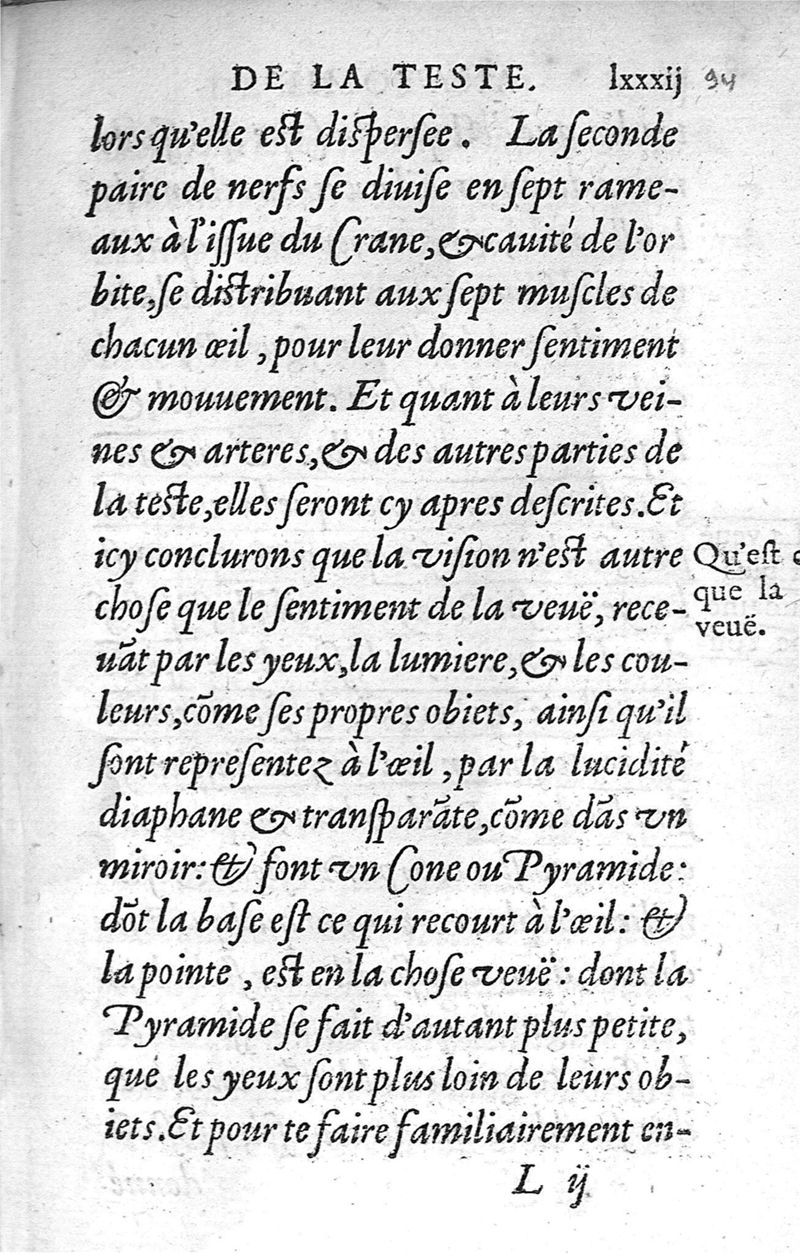 DE LA TESTE. lxxxij 94
lors qu'elle est dispersee. La seconde
paire de nerfs se diuise en sept rame-
aux à l'issue du Crane, & cauité de l'or
bite, se distribuant aux sept muscles de
chacun œil, pour leur donner sentiment
& mouuement. Et quant à leurs vei-
nes & arteres, & des autres parties de
la teste, elles seront cy apres descrites. Et
icy conclurons que la vision n'est autre
chose que le sentiment de la veuë, rece-
uāt par les yeux, la lumiere, & les cou-
leurs, cōme ses propres obiets, ainsi qu'il
sont representez à l'œil, par la lucidité
diaphane & transparāte, cōme dās vn
miroir: & font vn Cone ou Pyramide:
dōt la base est ce qui recourt à l'œil: &
la pointe, est en la chose veuë: dont la
Pyramide se fait d'autant plus petite,
que les yeux sont plus loin de leurs ob-
iets. Et pour te faire familiairement en-
L ij
Qu'est c
que la
veuë.